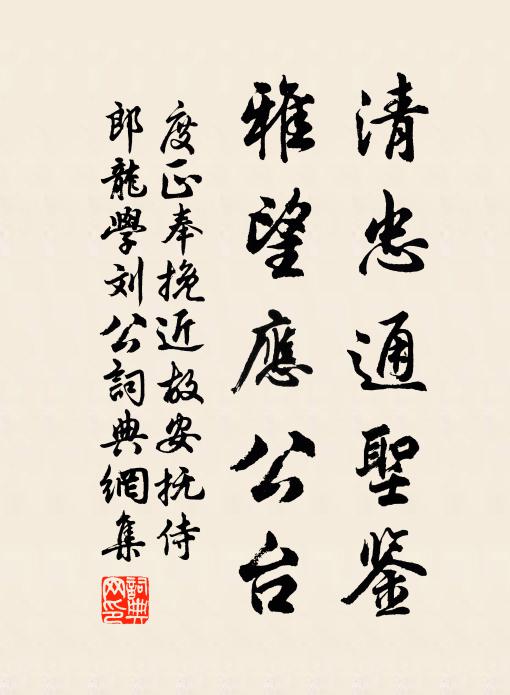 清忠通聖鉴
雅望應公台
度正奉挽近故安抚侍
郎龍學刘公詞典網集
詞典网印